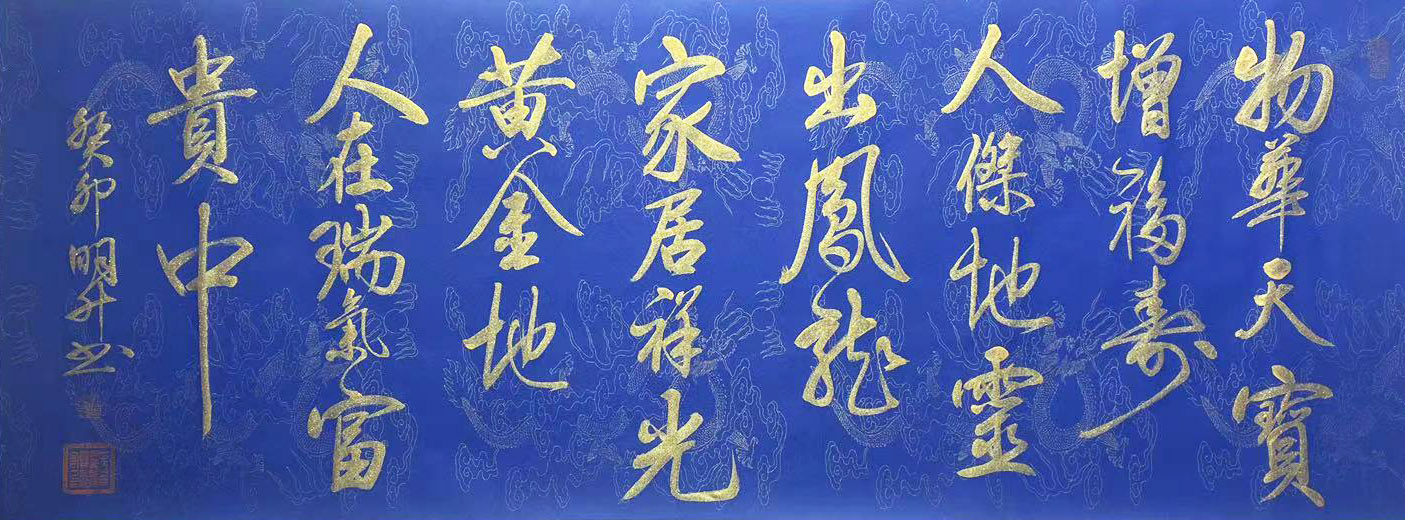 物華天寶
增福壽
人傑地靈
出鳳龍
家居祥光
黄金地
人在瑞氣富
貴中
癸卯明升书